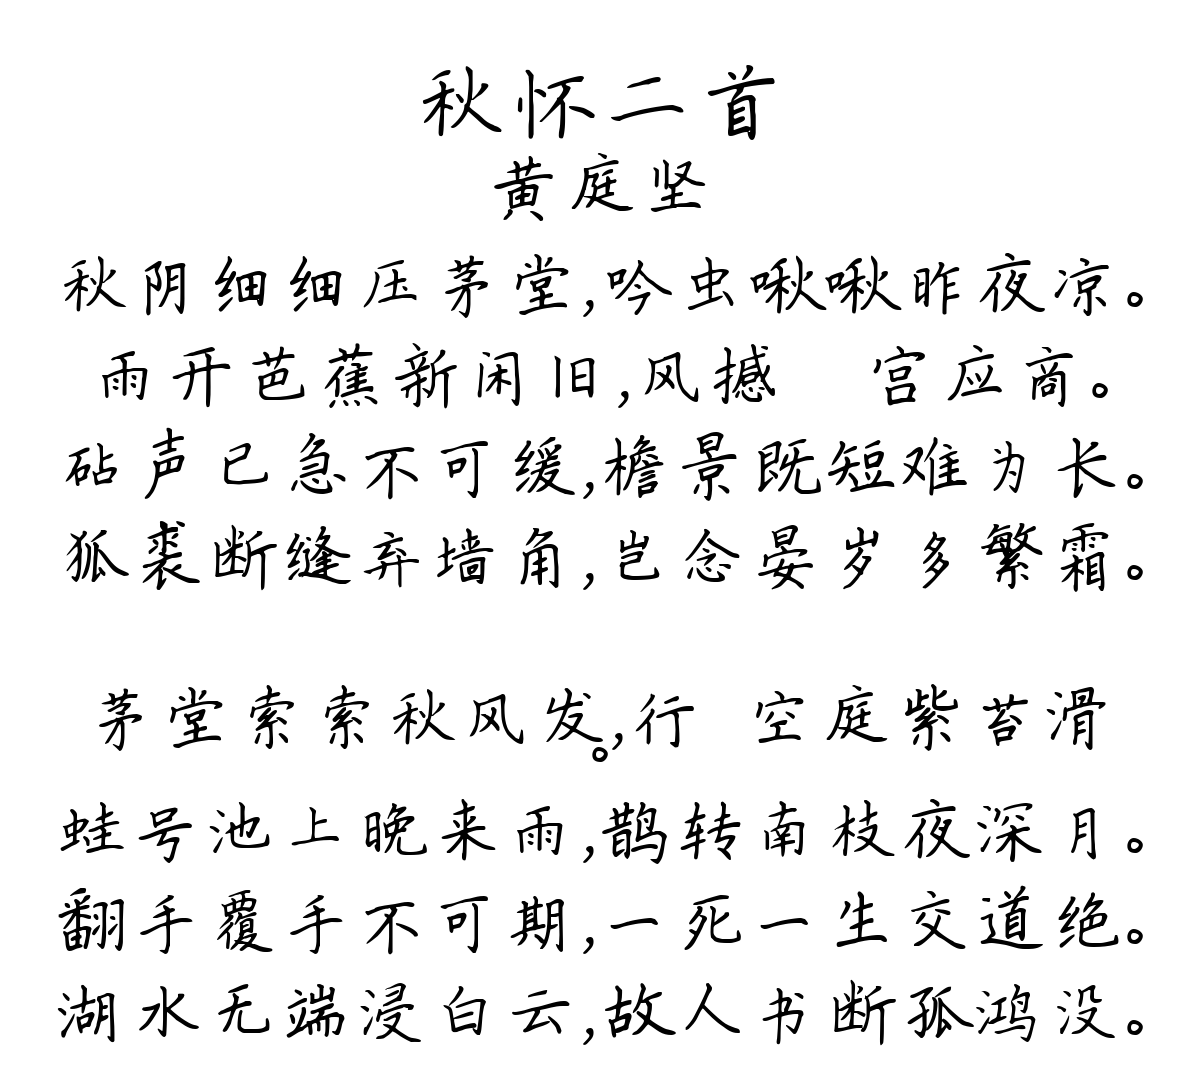 秋怀二首
黄庭坚
秋阴细细压茅堂,吟虫啾啾昨夜凉。
雨开芭蕉新闲旧,风撼 宫应商。
砧声已急不可缓,檐景既短难为长。
狐裘断缝弃墙角,岂念晏岁多繁霜。
茅堂索索秋风发,行 空庭紫苔滑。
蛙号池上晚来雨,鹊转南枝夜深月。
翻手覆手不可期,一死一生交道绝。
湖水无端浸白云,故人书断孤鸿没。